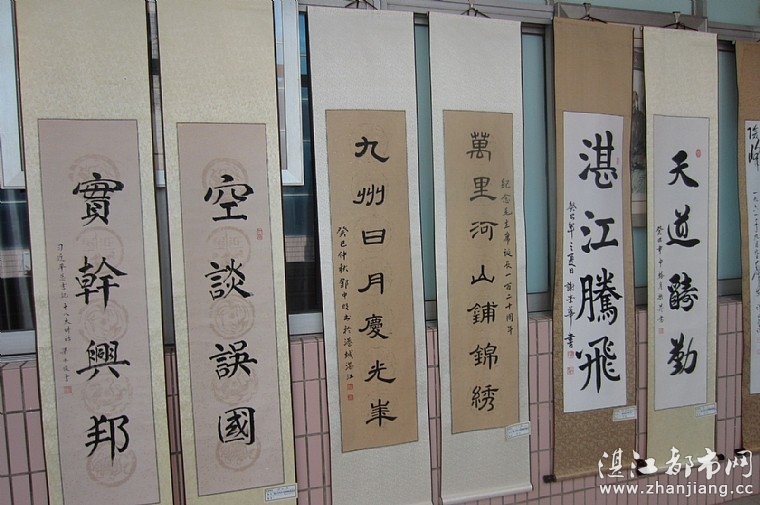 實幹興邦
空談誤國
九州日月慶光華
癸巳仲秋
於港城湛江
萬里河山鋪錦綉
紀念毛主席誕辰一百二十周年
湛江騰飛
天道酬勤
湛江都市网
www.zhanjiang.cc